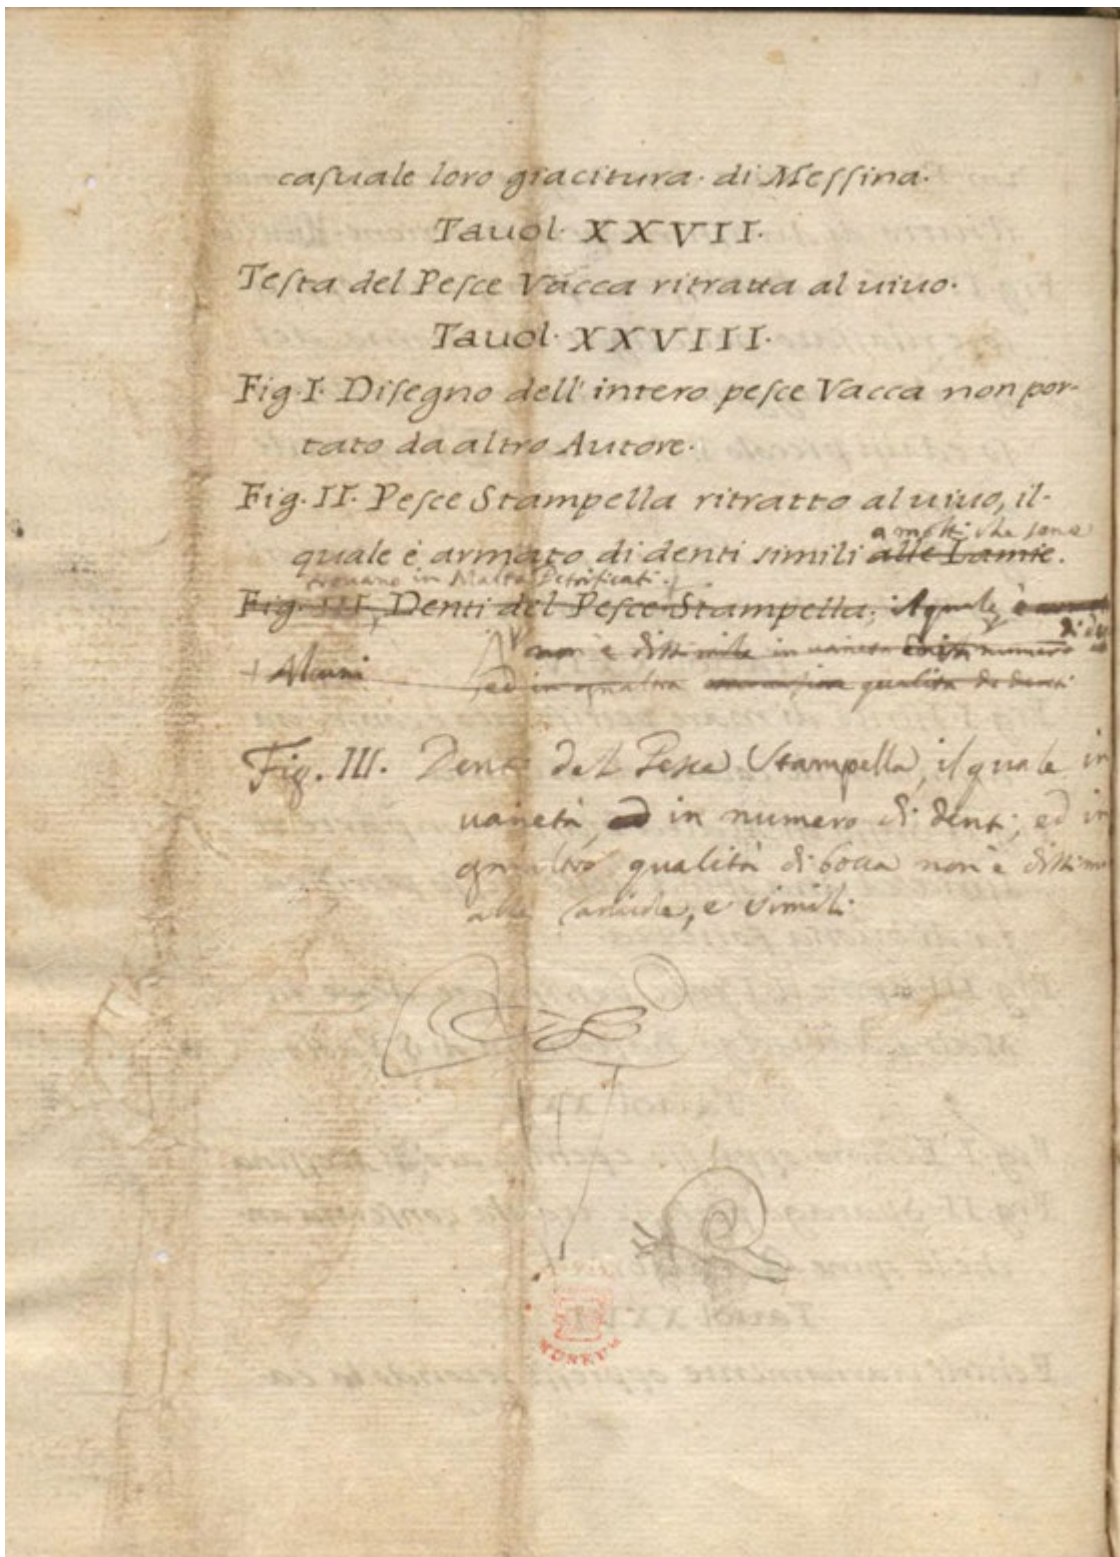 casuale loro giacitura. di Messina.
Tavol. XXVII.
Testa del Pesce Vacca ritratta al uiuo.
Tavol. XXVIII.
Fig. I. Disegno dell' intero pesce Vacca non por-
tato da altro Autore.
Fig. II. Pesce Stampella ritratto al uiuo, il-
a molti che sono
quale è armato di denti simili alle Lamie.
trouano in Malta Petrificati.
Fig. III, Denti del Pesce Stampella; il quale è
non è dissimile in uarietà numero di
+ Alcuni
ed in qualità di denti
Fig. III. Denti del Pesce Stampella, il quale in
uarietà, in numero di denti, ed in
qualità di bocca non è dissimi
alle e simili
MUSEUM